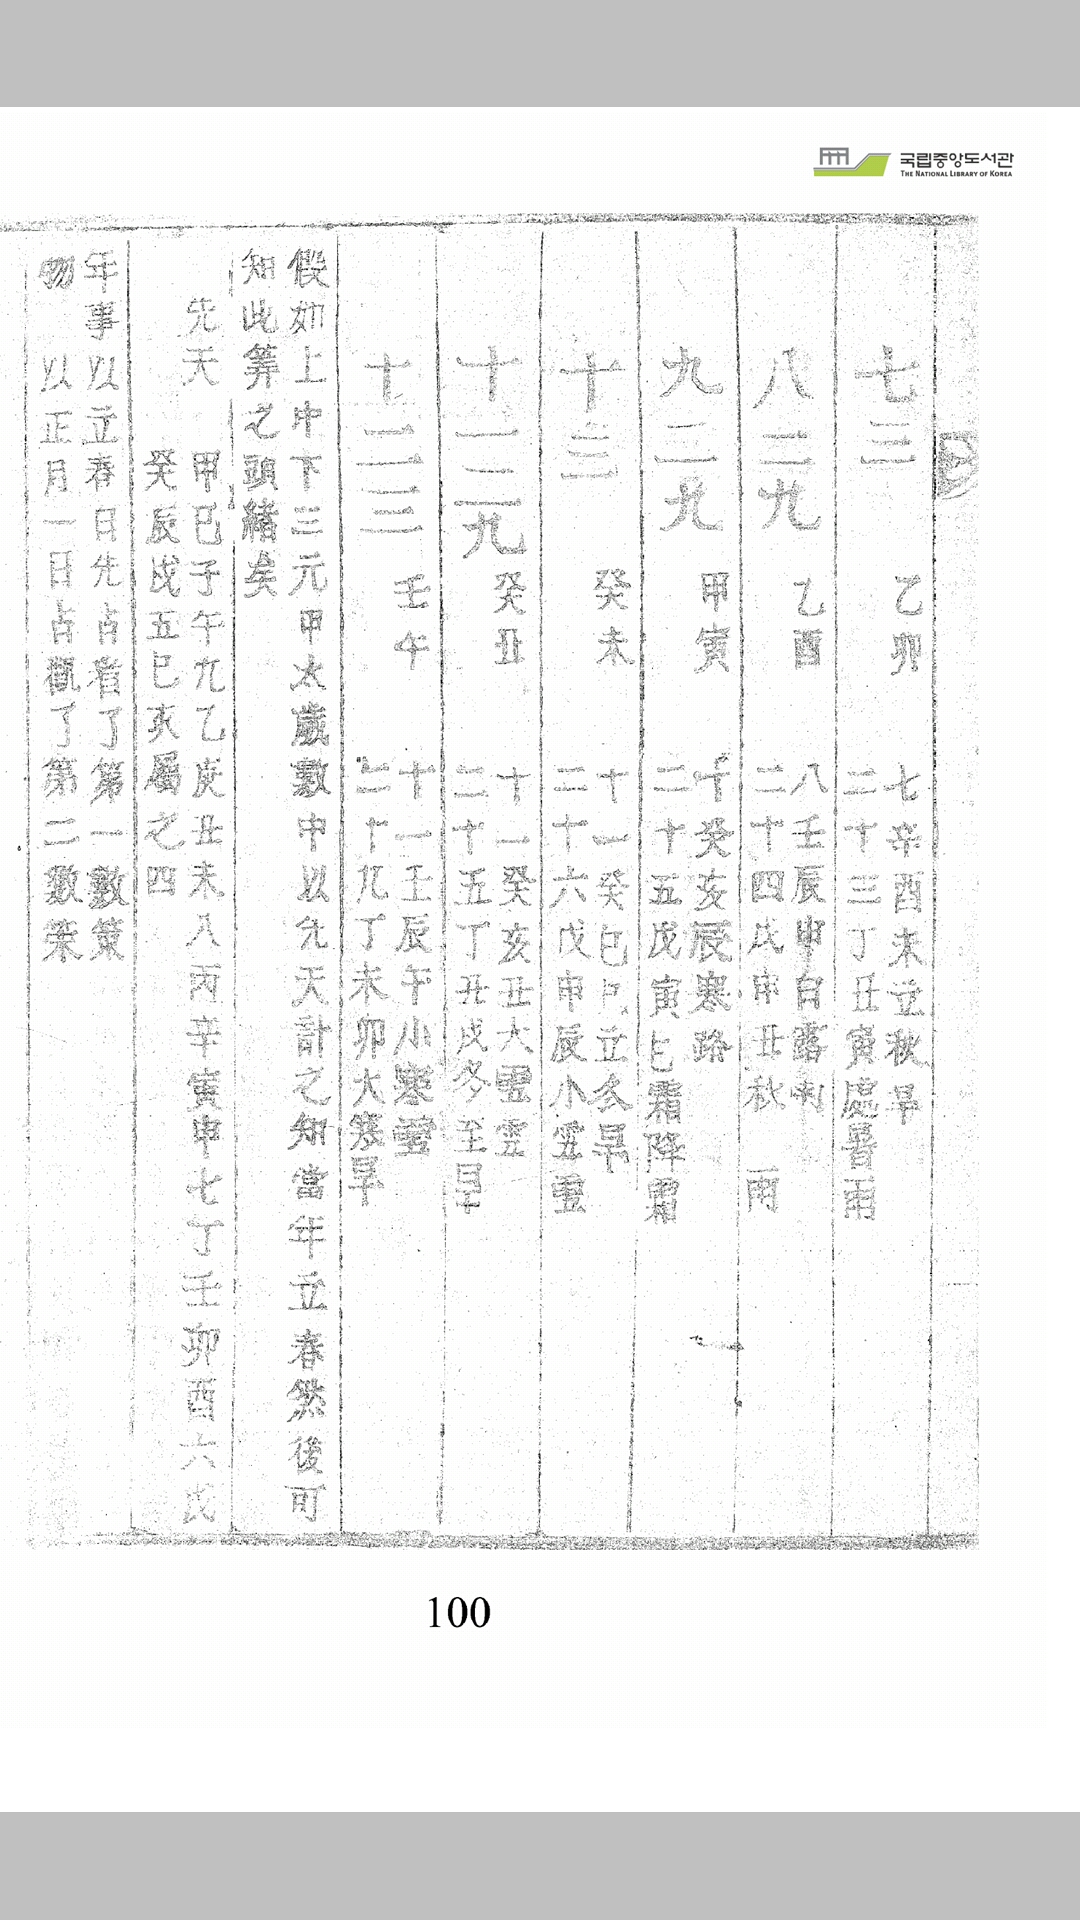 국립중앙도서관
THE NATIONAL LIBRARY OF KOREA
七三
乙卯
七辛酉未立秋旱
二十三丁丑寅處暑雨
八二九
乙酉
八壬辰申白露
二十四戊申丑秋 雨
九二九
甲寅
十癸亥辰寒路
二十五戊寅巳霜降霜
十三
癸未
十一癸巳巳立冬旱
二十六戊申辰小雪
十一二九
癸丑
十一癸亥丑大雪雲
二十五丁丑戌冬至旱
十二三
壬午
十一壬辰午小寒
二十九丁未卯大寒旱
假如上中下三元甲太歲數中以先天計之知當年立春然後可
知此筭之頭緒矣
先天 甲己子午九乙庚丑未八丙辛寅申七丁壬卯酉六戊
癸辰戌五巳亥屬之四
年事以立春日先占看了第一數策
物 以正月一日占觀了第二數策
100